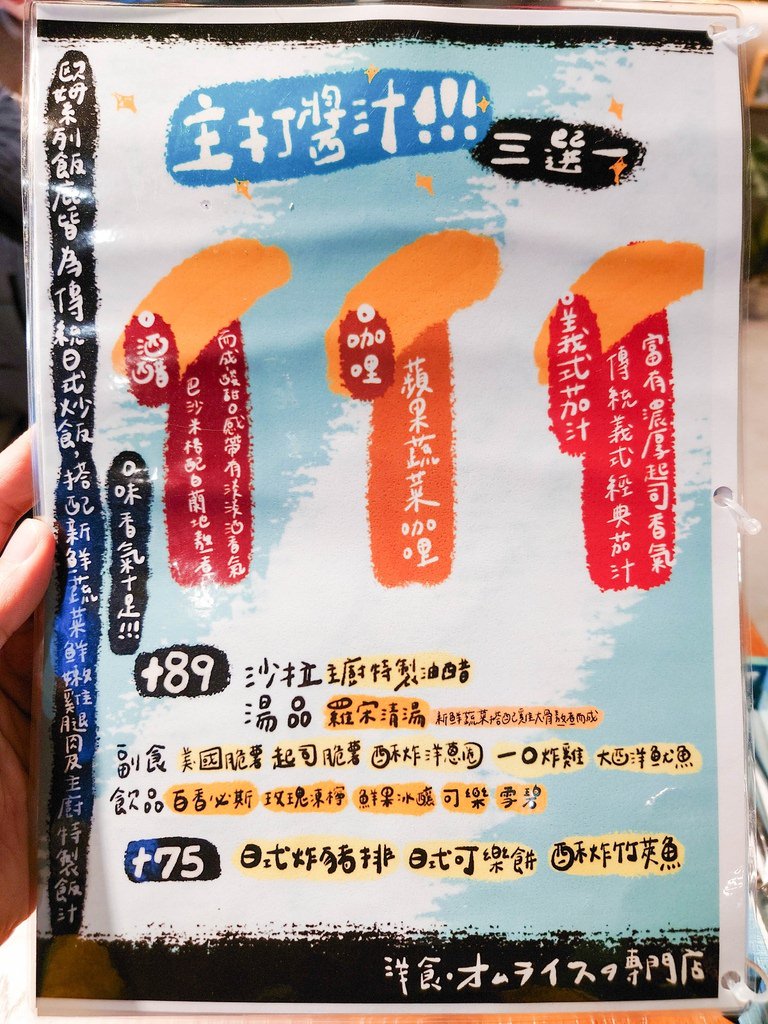 主打醬汁!!!
三選一
歐姆系列飯底皆為傳統日式炒飯,搭配新鮮蔬菜鮮嫩雞腿肉及主廚特製飯汁
口味香氣十足!!!
酒醋
巴沙米格配白蘭地熬煮
而成酸甜口感帶有淡淡酒香氣
咖哩
蘋果蔬菜咖哩
義式茄汁
富有濃厚起司香氣
傳統義式經典茄汁
+89
沙拉 主廚特製油醋
湯品 羅宋清湯 新鮮蔬菜搭配雞大骨熬煮而成
副食 美國脆薯 起司脆薯 酥炸洋蔥圈 一口炸雞 大西洋魷魚
飲品 百香必斯 玫瑰凍檸 鮮果冰釀 可樂 雪碧
+75 日式炸豬排 日式可樂餅 酥炸竹莢魚
洋食・オムライスの専門店